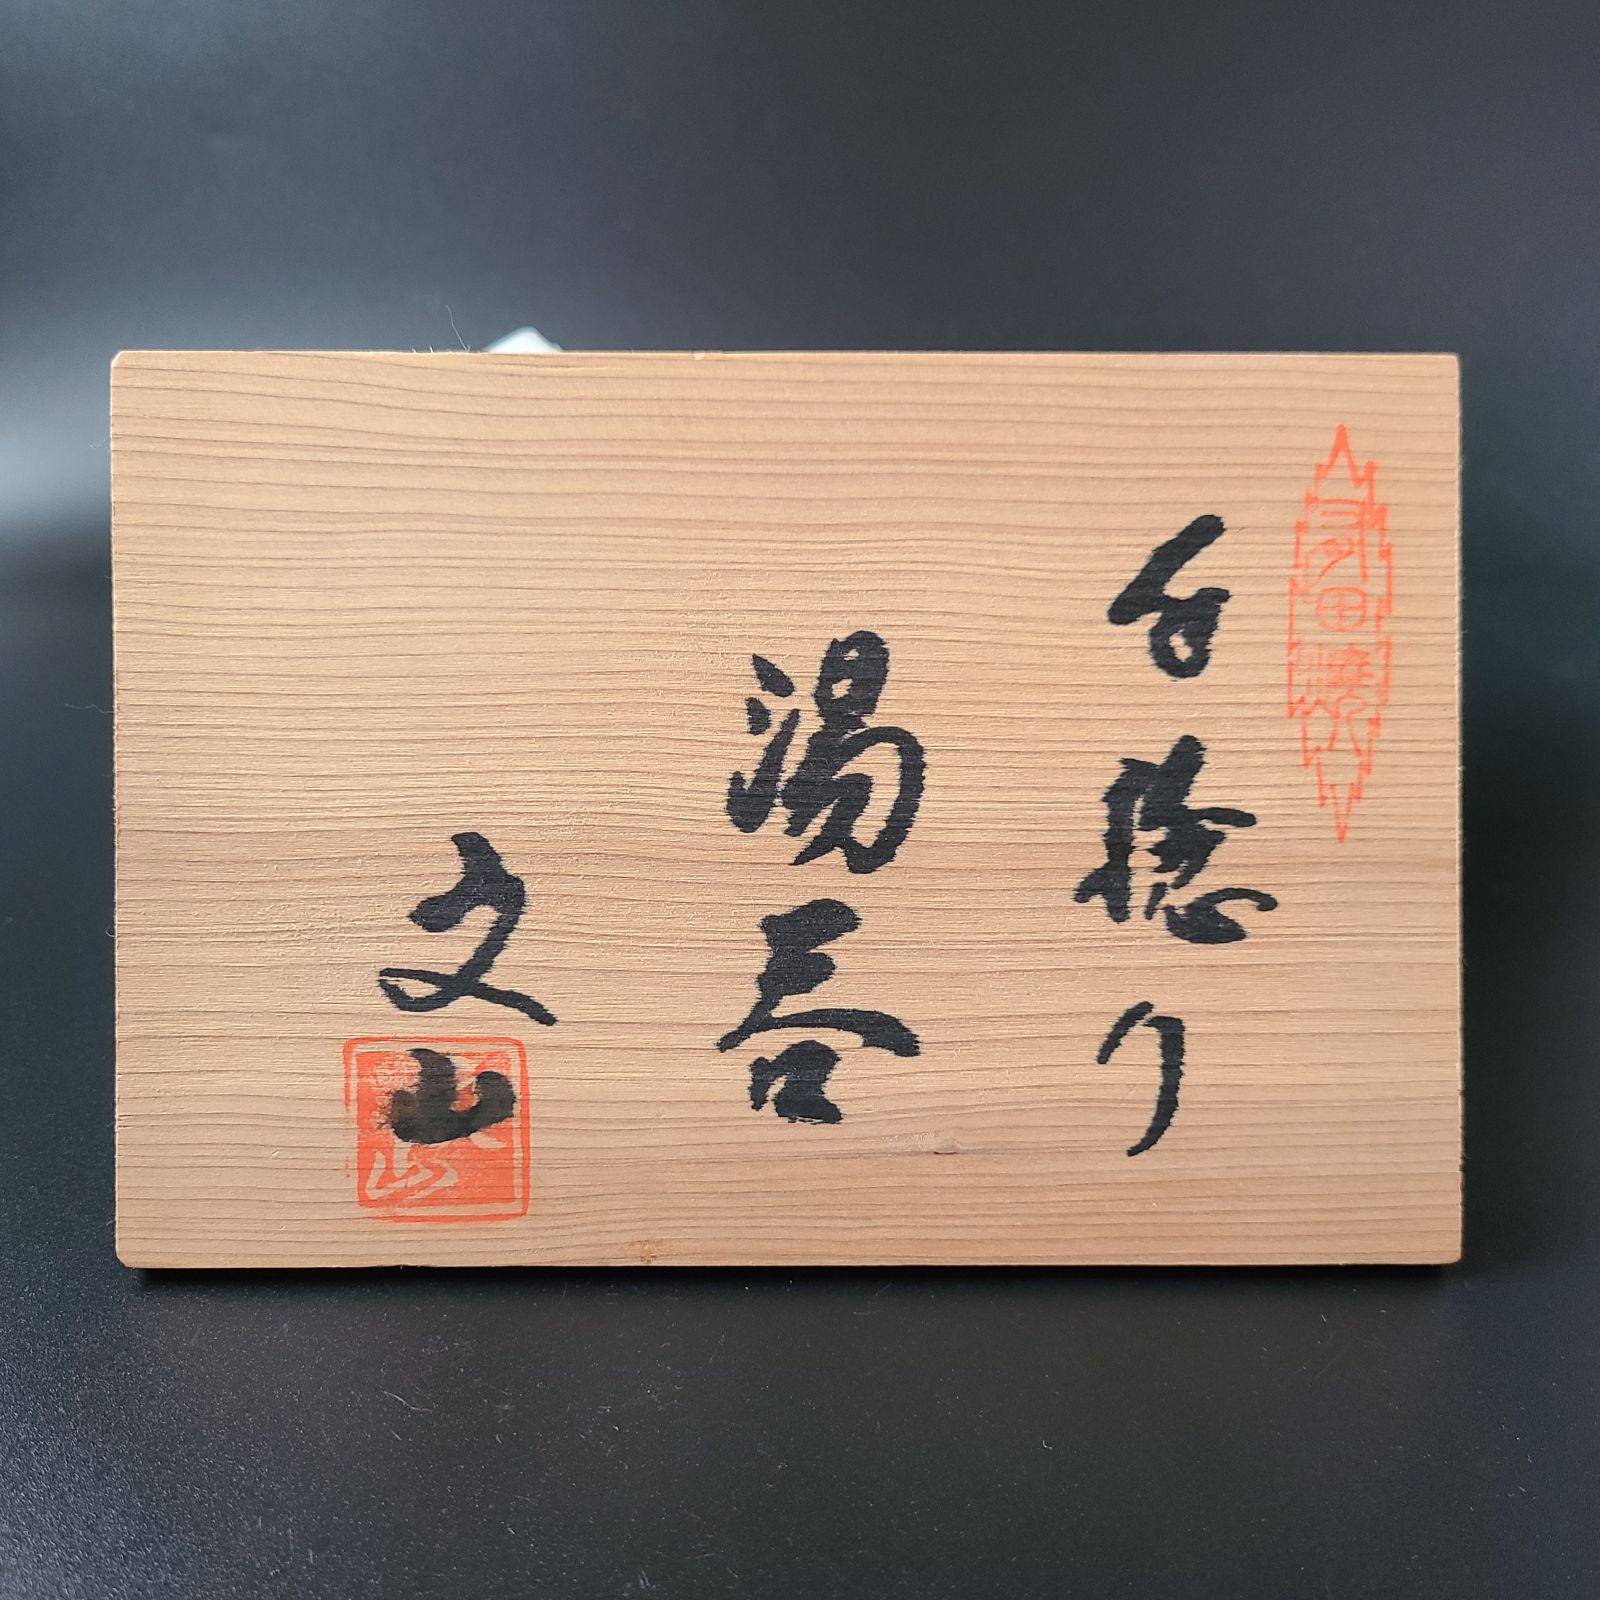 有田焼
手捻り
湯呑
文山
文山